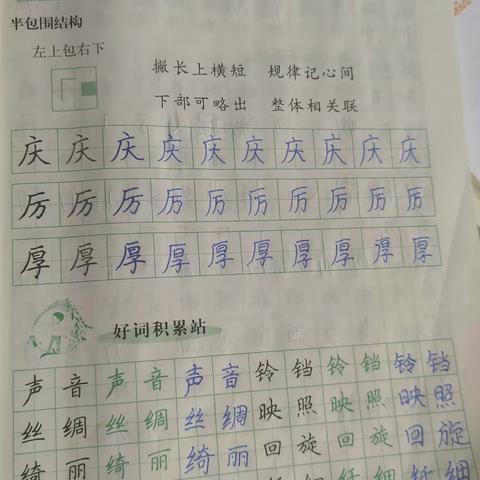 半包围结构
左上包右下
撇长上横短 规律记心间
下部可略出 整体相关联
庆庆庆庆庆庆庆庆庆庆
厉厉厉厉厉厉厉厉厉厉
厚厚厚厚厚厚厚厚厚厚
好词积累站
声音声音声音铃铛铃铛铃铛
丝绸丝绸丝绸映照映照映照
绮丽绮丽绮丽回旋回旋回旋